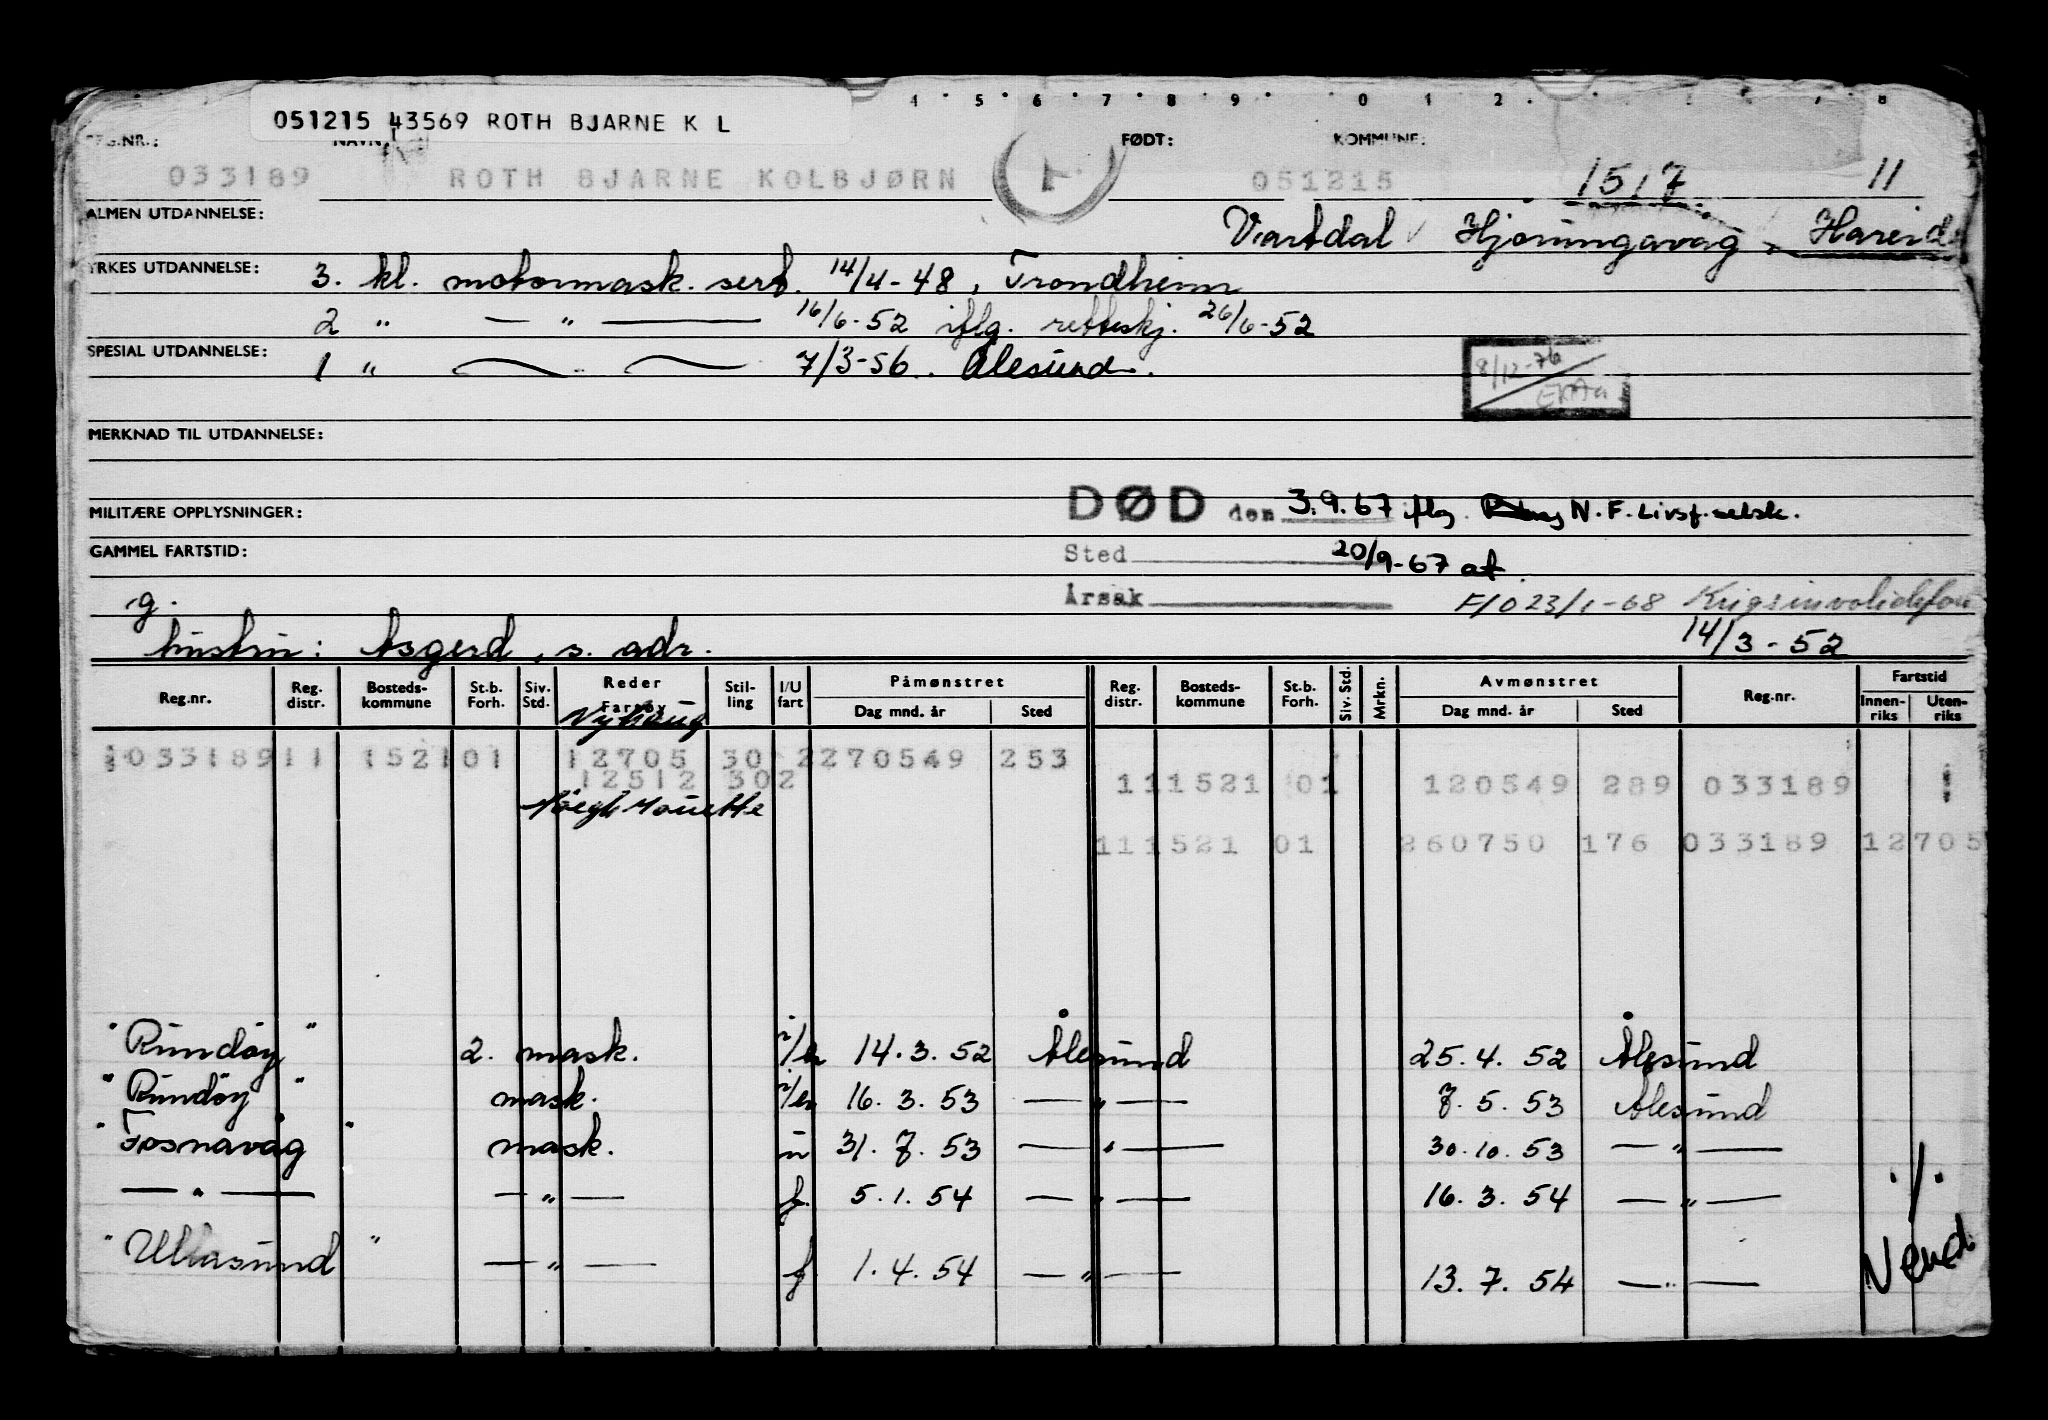 4 · 5 · 6 · 7 · 8 · 9 · 0 1 2 · 7 8
051215 43569 ROTH BJARNE K L
REG.NR.: NAVN FØDT: KOMMUNE:
033189 ROTH BJARNE KOLBJØRN 051215 1517 11
ALMEN UTDANNELSE: Vartdal Hjørungavåg, Hareid
YRKES UTDANNELSE: 3. kl. motormask. sert. 14/4-48, Trondheim
2 " — " — 16/6-52 iflg. retteskj. 26/6-52
SPESIAL UTDANNELSE: 1 " — — 7/3-56. Ålesund.
8/12-76
MERKNAD TIL UTDANNELSE:
MILITÆRE OPPLYSNINGER: DØD den 3.9.67 iflg. N.F. Livsf.selsk.
GAMMEL FARTSTID: Sted 20/9-67 at
g. Årsak F/O 23/1-68 Krigsinvalidefor
hustru: Asgerd, s. adr. 14/3-52
Reg.nr. Reg. distr. Bosteds-kommune St.b. Forh. Siv. Std. Reder Fartøy Stil-ling I/U fart Påmønstret Dag mnd. år Sted Reg. distr. Bosteds-kommune St.b. Forh. Siv. Std. Mrkn. Avmønstret Dag mnd. år Sted Reg.nr. Fartstid Innen-riks Uten-riks
Nyhaug
033189 11 1521 01 12705 30 2 270549 253
12512 302 111521 01 120549 289 033189
111521 01 260750 176 033189 12705
"Rundøy" 2. mask. i/u 14.3.52 Ålesund 25.4.52 Ålesund
"Rundøy" mask. i/u 16.3.53 — " — 7.5.53 Ålesund
"Fosnavåg" mask. u 31.7.53 — " — 30.10.53 — " —
— " — — " — f. 5.1.54 — " — 16.3.54 — " —
"Ullasund" — " — f 1.4.54 — " — 13.7.54 — " —
./.
Vend